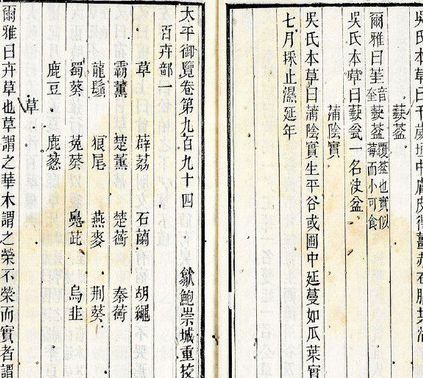 吳氏本草曰千歲垣中膚皮得薑赤石脂共治
蒛葐
爾雅曰茥音奎蒛葐覆葐也實似莓而小可食
吳氏本草曰蒛一名決盆
蒲陰實
吳氏本草曰蒲陰實生平谷或圃中延蔓如瓜葉實
七月採止濕延年
太平御覽卷第九百九十四 歙鮑崇城重挍
百卉部一
草 薜荔 石蘭 胡繩
霸薰 楚薰 楚蘅 秦蘅
龍鬚 狼尾 燕麥 荊葵
蜀葵 菟葵 鳧茈 烏韭
鹿豆 鹿蔥
草
爾雅曰卉草也草謂之華木謂之榮不榮而實者謂